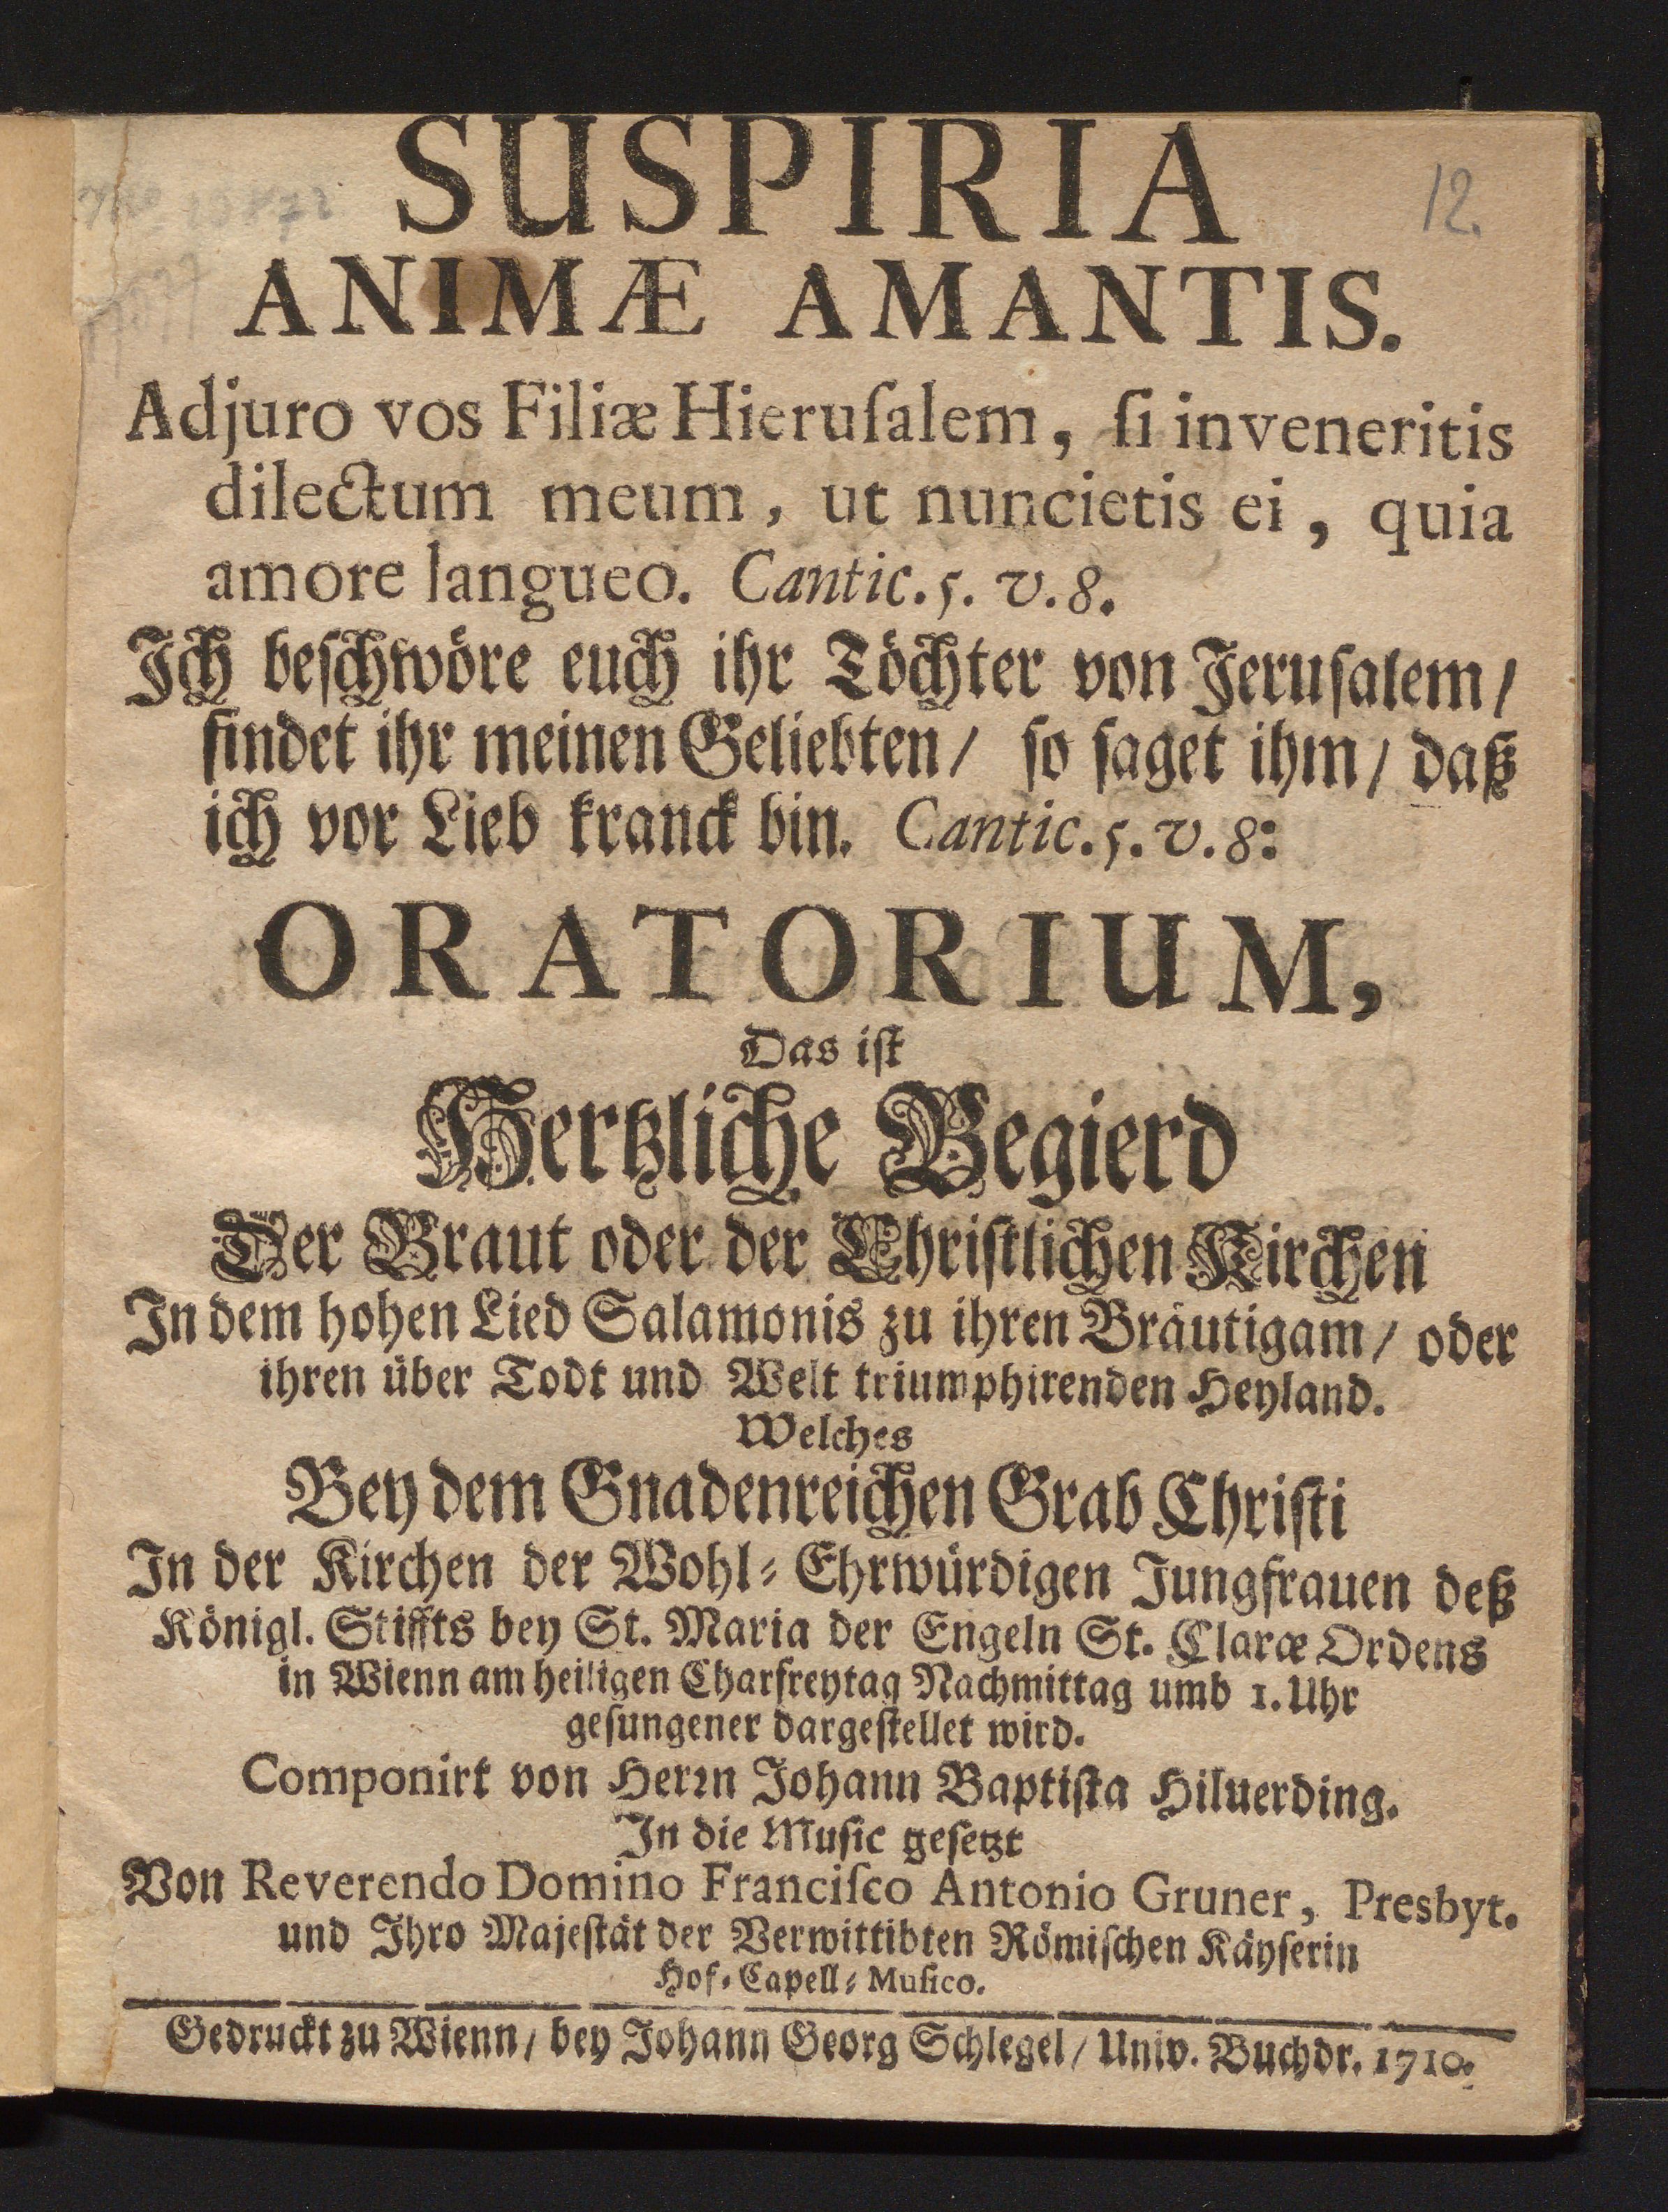 SUSPIRIA
12.
ANIMÆ AMANTIS.
Adjuro vos Filiæ Hieruſalem, ſi inveneritis
dilectum meum, ut nuncietis ei, quia
amore langueo. Cantic. 5. v. 8.
Ich beſchwöre euch ihr Töchter von Jeruſalem/
findet ihr meinen Geliebten/ ſo ſaget ihm/ daß
ich vor Lieb kranck bin. Cantic. 5. v. 8:
ORATORIUM,
Das iſt
Hertzliche Begierd
Der Braut oder der Chriſtlichen Kirchen
In dem hohen Lied Salamonis zu ihren Bräutigam/ oder
ihren über Todt und Welt triumphirenden Heyland.
Welches
Bey dem Gnadenreichen Grab Chriſti
In der Kirchen der Wohl⸗Ehrwürdigen Jungfrauen deß
Königl. Stiffts bey St. Maria der Engeln St. Claræ Ordens
in Wienn am heiligen Charfreytag Nachmittag umb 1. Uhr
geſungener dargeſtellet wird.
Componirt von Herꝛn Johann Baptiſta Hiluerding.
In die Muſic geſetzt
Von Reverendo Domino Franciſco Antonio Gruner, Presbyt.
und Ihro Majeſtät der Verwittibten Römiſchen Käyſerin
Hof⸗Capell⸗Muſico.
Gedruckt zu Wienn/ bey Johann Georg Schlegel/ Univ. Buchdr. 1710.